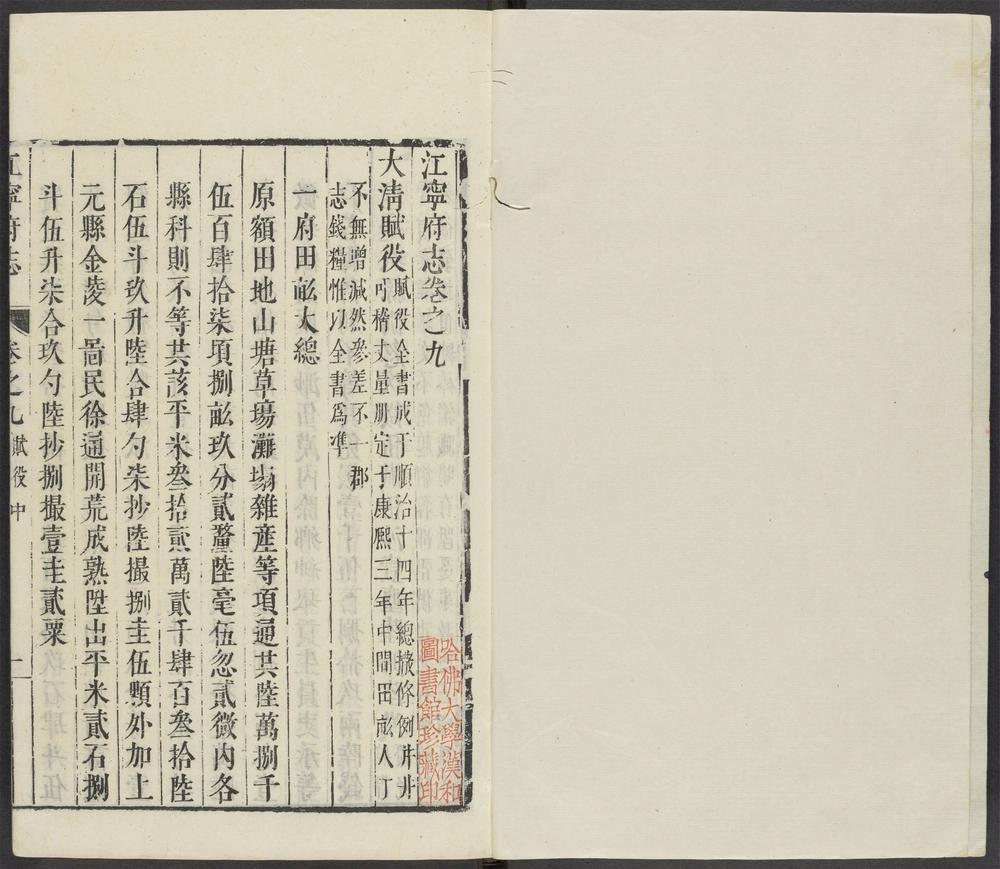 江寧府志卷之九
大清賦役賦役全書成于順治十四年總撒條例井井
可稽丈量冊定于康熙三年中間田畝人丁
不無增減然參差不郡
志錢糧惟以全書爲準
一府田畝大總
原額田地山塘草場灘塲雜產等項通共陸萬捌千
伍百肆拾柒項捌畝玖分貳釐陸毫伍忽貳微內各
縣科則不等共該平米叁拾貳萬貳千肆百叁拾陸
石伍斗玖升陸合肆勺柒抄陸撮捌圭伍顆外加上
元縣金陵一啚民徐通開荒成熟陞出平米貳石捌
斗伍升柒合玖勺陸抄捌撮壹圭貳粟
江寧府志
卷之九
賦役中
一
哈佛大學漢和
圖書館珍藏印